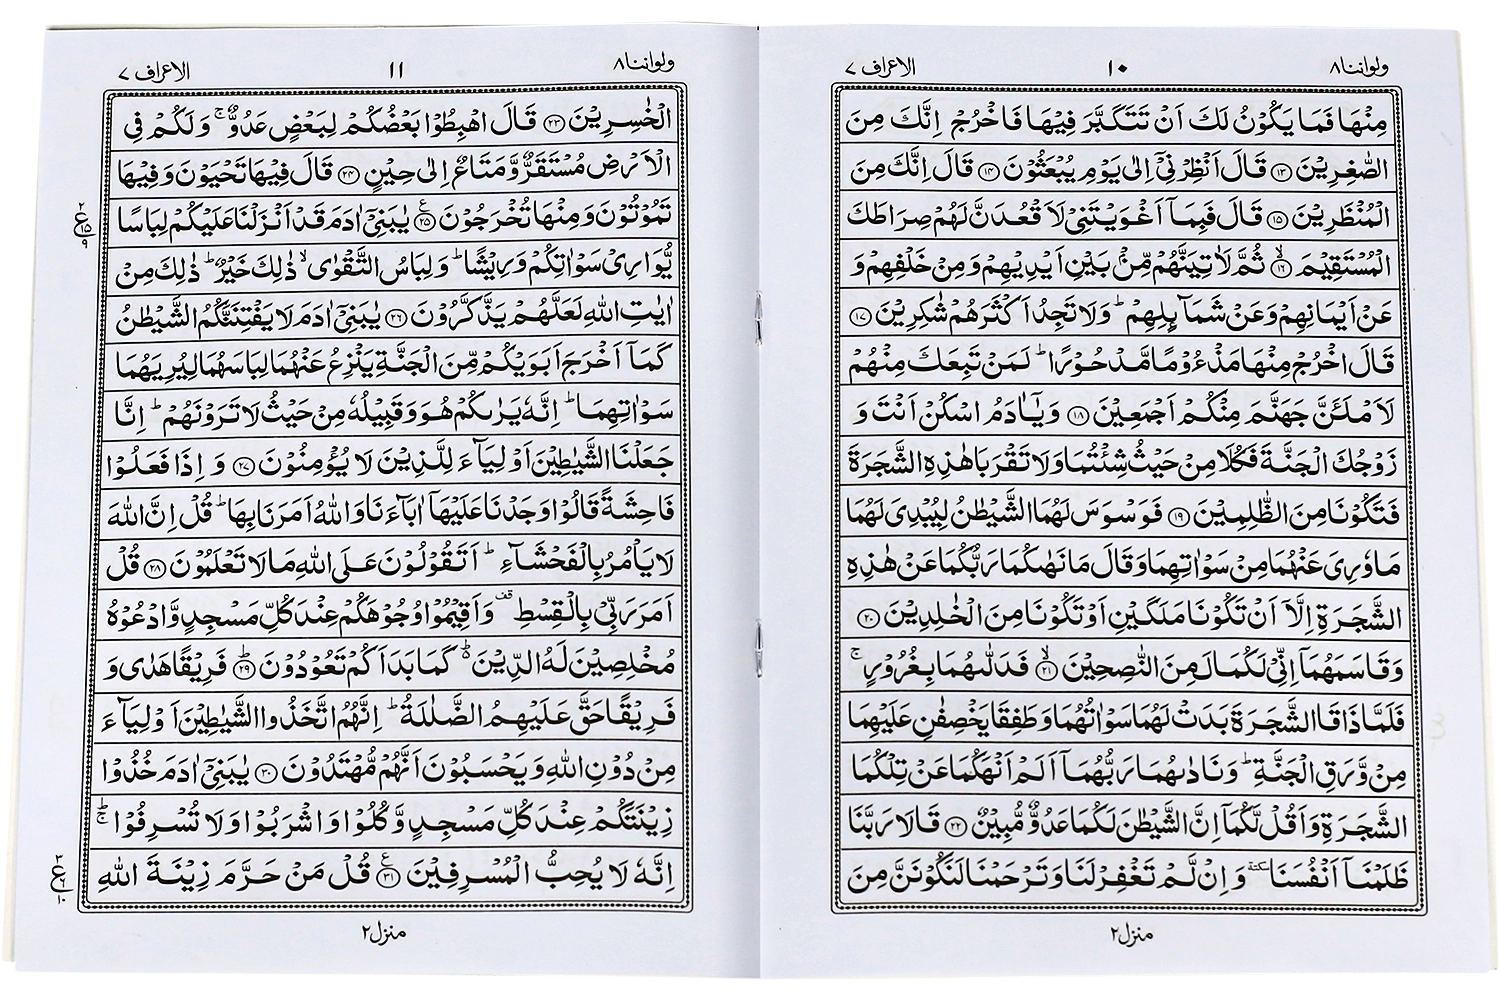 ولواننا ٨
١٠
الاعراف ٧
مِنْهَا فَمَا يَكُوْنُ لَكَ اَنْ تَتَكَبَّرَ فِيْهَا فَاخْرُجْ اِنَّكَ مِنَ
الصّٰغِرِيْنَ ١٣ قَالَ اَنْظِرْنِيْٓ اِلٰى يَوْمِ يُبْعَثُوْنَ ١٤ قَالَ اِنَّكَ مِنَ
الْمُنْظَرِيْنَ ١٥ قَالَ فَبِمَآ اَغْوَيْتَنِيْ لَاَقْعُدَنَّ لَهُمْ صِرَاطَكَ
الْمُسْتَقِيْمَ ١٦ۙ ثُمَّ لَاٰتِيَنَّهُمْ مِّنْۢ بَيْنِ اَيْدِيْهِمْ وَمِنْ خَلْفِهِمْ وَ
عَنْ اَيْمَانِهِمْ وَعَنْ شَمَآئِلِهِمْ ؕ وَلَا تَجِدُ اَكْثَرَهُمْ شٰكِرِيْنَ ١٧
قَالَ اخْرُجْ مِنْهَا مَذْءُوْمًا مَّدْحُوْرًا ؕ لَمَنْ تَبِعَكَ مِنْهُمْ
لَاَمْلَئَنَّ جَهَنَّمَ مِنْكُمْ اَجْمَعِيْنَ ١٨ وَيٰٓاٰدَمُ اسْكُنْ اَنْتَ وَ
زَوْجُكَ الْجَنَّةَ فَكُلَا مِنْ حَيْثُ شِئْتُمَا وَلَا تَقْرَبَا هٰذِهِ الشَّجَرَةَ
فَتَكُوْنَا مِنَ الظّٰلِمِيْنَ ١٩ فَوَسْوَسَ لَهُمَا الشَّيْطٰنُ لِيُبْدِيَ لَهُمَا
مَا وٗرِيَ عَنْهُمَا مِنْ سَوْاٰتِهِمَا وَقَالَ مَا نَهٰىكُمَا رَبُّكُمَا عَنْ هٰذِهِ
الشَّجَرَةِ اِلَّآ اَنْ تَكُوْنَا مَلَكَيْنِ اَوْ تَكُوْنَا مِنَ الْخٰلِدِيْنَ ٢٠
وَقَاسَمَهُمَآ اِنِّيْ لَكُمَا لَمِنَ النّٰصِحِيْنَ ٢١ۙ فَدَلّٰىهُمَا بِغُرُوْرٍ ۚ
فَلَمَّا ذَاقَا الشَّجَرَةَ بَدَتْ لَهُمَا سَوْاٰتُهُمَا وَطَفِقَا يَخْصِفٰنِ عَلَيْهِمَا
مِنْ وَّرَقِ الْجَنَّةِ ؕ وَنَادٰىهُمَا رَبُّهُمَآ اَلَمْ اَنْهَكُمَا عَنْ تِلْكُمَا
الشَّجَرَةِ وَاَقُلْ لَّكُمَآ اِنَّ الشَّيْطٰنَ لَكُمَا عَدُوٌّ مُّبِيْنٌ ٢٢ قَالَا رَبَّنَا
ظَلَمْنَآ اَنْفُسَنَا سكتة وَاِنْ لَّمْ تَغْفِرْ لَنَا وَتَرْحَمْنَا لَنَكُوْنَنَّ مِنَ
منزل ٢
ولواننا ٨
١١
الاعراف ٧
الْخٰسِرِيْنَ ٢٣ قَالَ اهْبِطُوْا بَعْضُكُمْ لِبَعْضٍ عَدُوٌّ ۚ وَلَكُمْ فِي
الْاَرْضِ مُسْتَقَرٌّ وَّمَتَاعٌ اِلٰى حِيْنٍ ٢٤ قَالَ فِيْهَا تَحْيَوْنَ وَفِيْهَا
تَمُوْتُوْنَ وَمِنْهَا تُخْرَجُوْنَ ٢٥ ع يٰبَنِيْٓ اٰدَمَ قَدْ اَنْزَلْنَا عَلَيْكُمْ لِبَاسًا
٢ ع ١٥ ٩
يُّوَارِيْ سَوْاٰتِكُمْ وَرِيْشًا ؕ وَلِبَاسُ التَّقْوٰى ۙ ذٰلِكَ خَيْرٌ ؕ ذٰلِكَ مِنْ
اٰيٰتِ اللّٰهِ لَعَلَّهُمْ يَذَّكَّرُوْنَ ٢٦ يٰبَنِيْٓ اٰدَمَ لَا يَفْتِنَنَّكُمُ الشَّيْطٰنُ
كَمَآ اَخْرَجَ اَبَوَيْكُمْ مِّنَ الْجَنَّةِ يَنْزِعُ عَنْهُمَا لِبَاسَهُمَا لِيُرِيَهُمَا
سَوْاٰتِهِمَا ؕ اِنَّهٗ يَرٰىكُمْ هُوَ وَقَبِيْلُهٗ مِنْ حَيْثُ لَا تَرَوْنَهُمْ ؕ اِنَّا
جَعَلْنَا الشَّيٰطِيْنَ اَوْلِيَآءَ لِلَّذِيْنَ لَا يُؤْمِنُوْنَ ٢٧ وَاِذَا فَعَلُوْا
فَاحِشَةً قَالُوْا وَجَدْنَا عَلَيْهَآ اٰبَآءَنَا وَاللّٰهُ اَمَرَنَا بِهَا ؕ قُلْ اِنَّ اللّٰهَ
لَا يَاْمُرُ بِالْفَحْشَآءِ ؕ اَتَقُوْلُوْنَ عَلَى اللّٰهِ مَا لَا تَعْلَمُوْنَ ٢٨ قُلْ
اَمَرَ رَبِّيْ بِالْقِسْطِ قف وَاَقِيْمُوْا وُجُوْهَكُمْ عِنْدَ كُلِّ مَسْجِدٍ وَّادْعُوْهُ
مُخْلِصِيْنَ لَهُ الدِّيْنَ ۬ؕ كَمَا بَدَاَكُمْ تَعُوْدُوْنَ ٢٩ؕ فَرِيْقًا هَدٰى وَ
فَرِيْقًا حَقَّ عَلَيْهِمُ الضَّلٰلَةُ ؕ اِنَّهُمُ اتَّخَذُوا الشَّيٰطِيْنَ اَوْلِيَآءَ
مِنْ دُوْنِ اللّٰهِ وَيَحْسَبُوْنَ اَنَّهُمْ مُّهْتَدُوْنَ ٣٠ يٰبَنِيْٓ اٰدَمَ خُذُوْا
زِيْنَتَكُمْ عِنْدَ كُلِّ مَسْجِدٍ وَّكُلُوْا وَاشْرَبُوْا وَلَا تُسْرِفُوْا ۚؕ
اِنَّهٗ لَا يُحِبُّ الْمُسْرِفِيْنَ ٣١ ع قُلْ مَنْ حَرَّمَ زِيْنَةَ اللّٰهِ
٣ ع ٦ ١٠
منزل ٢